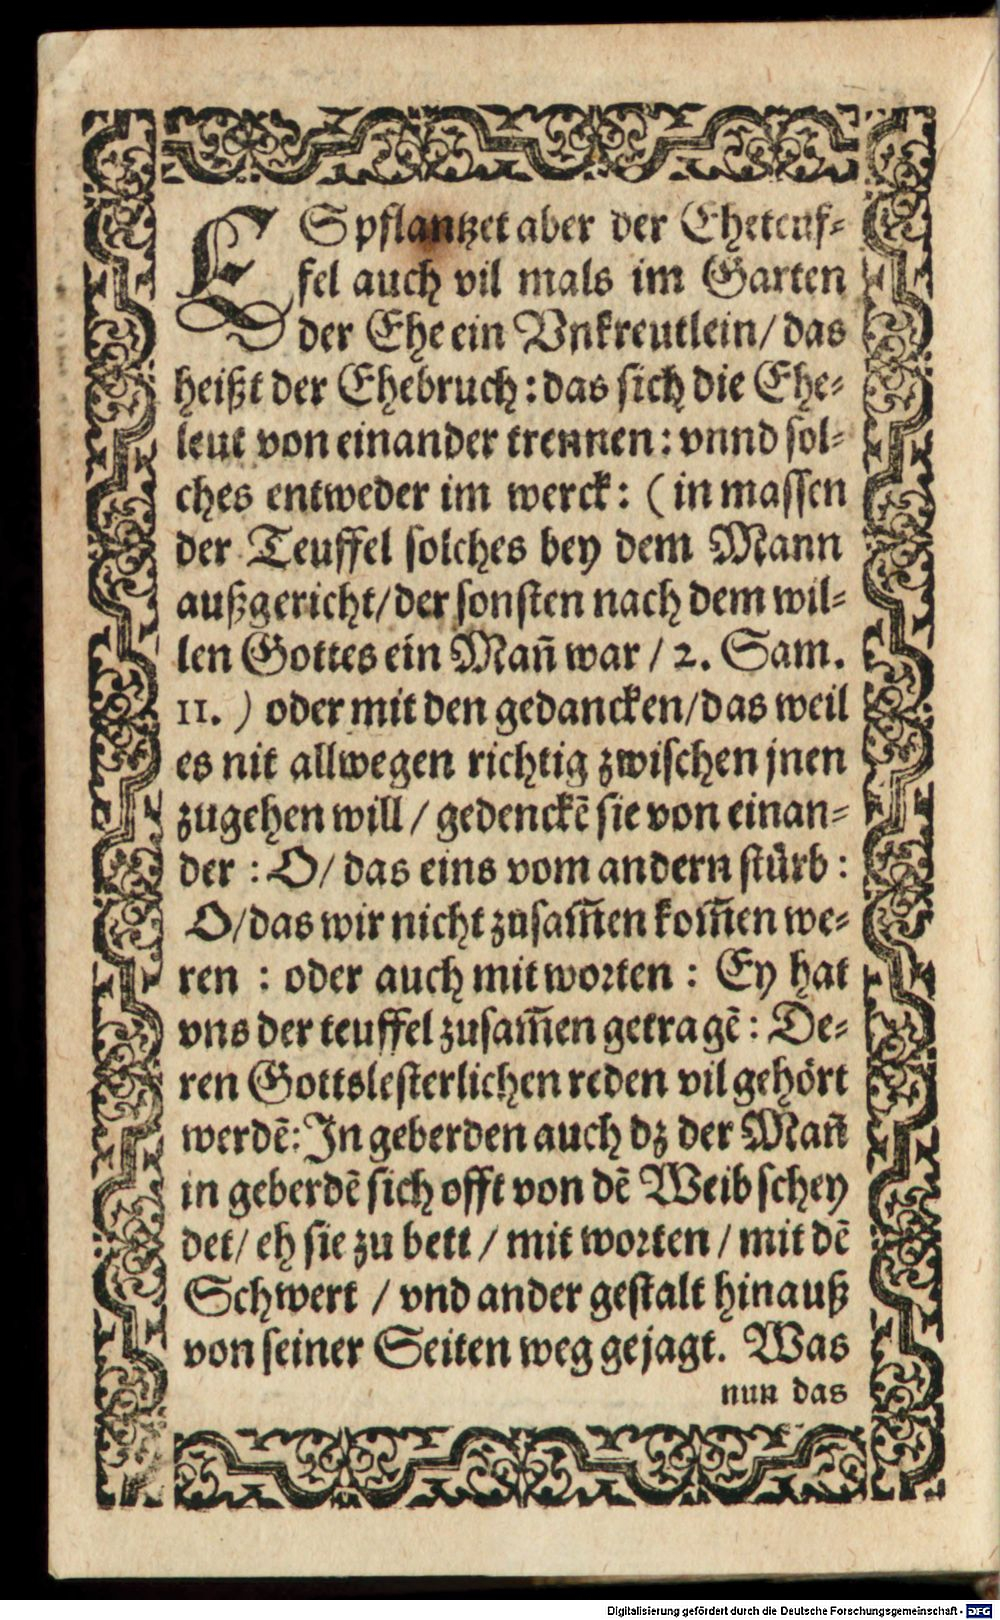 ES pflantzet aber der Eheteuf-
fel auch vil mals im Garten
der Ehe ein Vnkreutlein/ das
heißt der Ehebruch: das sich die Ehe-
leut von einander trennen: vnnd sol-
ches entweder im werck: (in massen
der Teuffel solches bey dem Mann
außgericht/ der sonsten nach dem wil-
len Gottes ein Mañ war / 2. Sam.
11. ) oder mit den gedancken/ das weil
es nit allwegen richtig zwischen jnen
zugehen will / gedenckẽ sie von einan-
der : O/ das eins vom andern stürb :
O/ das wir nicht zusam̃en kom̃en we-
ren : oder auch mit worten : Ey hat
vns der teuffel zusam̃en getragẽ: De-
ren Gottslesterlichen reden vil gehört
werdẽ: In geberden auch dz der Mañ
in geberdẽ sich offt von dẽ Weib schey
det/ eh sie zu bett / mit worten / mit dẽ
Schwert / vnd ander gestalt hinauß
von seiner Seiten weg gejagt. Was
nun das
Digitalisierung gefördert durch die Deutsche Forschungsgemeinschaft - DFG